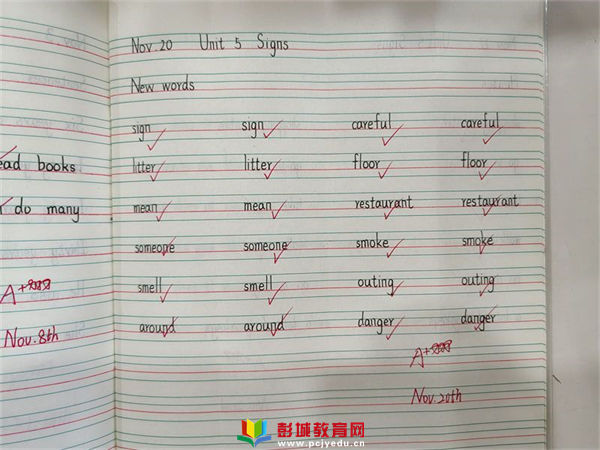 Nov.20 Unit 5 Signs
New words
sign sign careful careful
litter litter floor floor
mean mean restaurant restaurant
someone someone smoke smoke
smell smell outing outing
around around danger danger
A+
Nov.20th
ead books
do many
A+
Nov.8th
彭城教育网
www.pcjyedu.cn